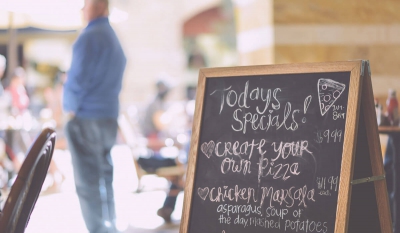 Todays
Specials!
$9.99
♡create your
own pizza
$11.99
♡chicken Marsala
asparagus, soup of
the day, Mashed potatoes